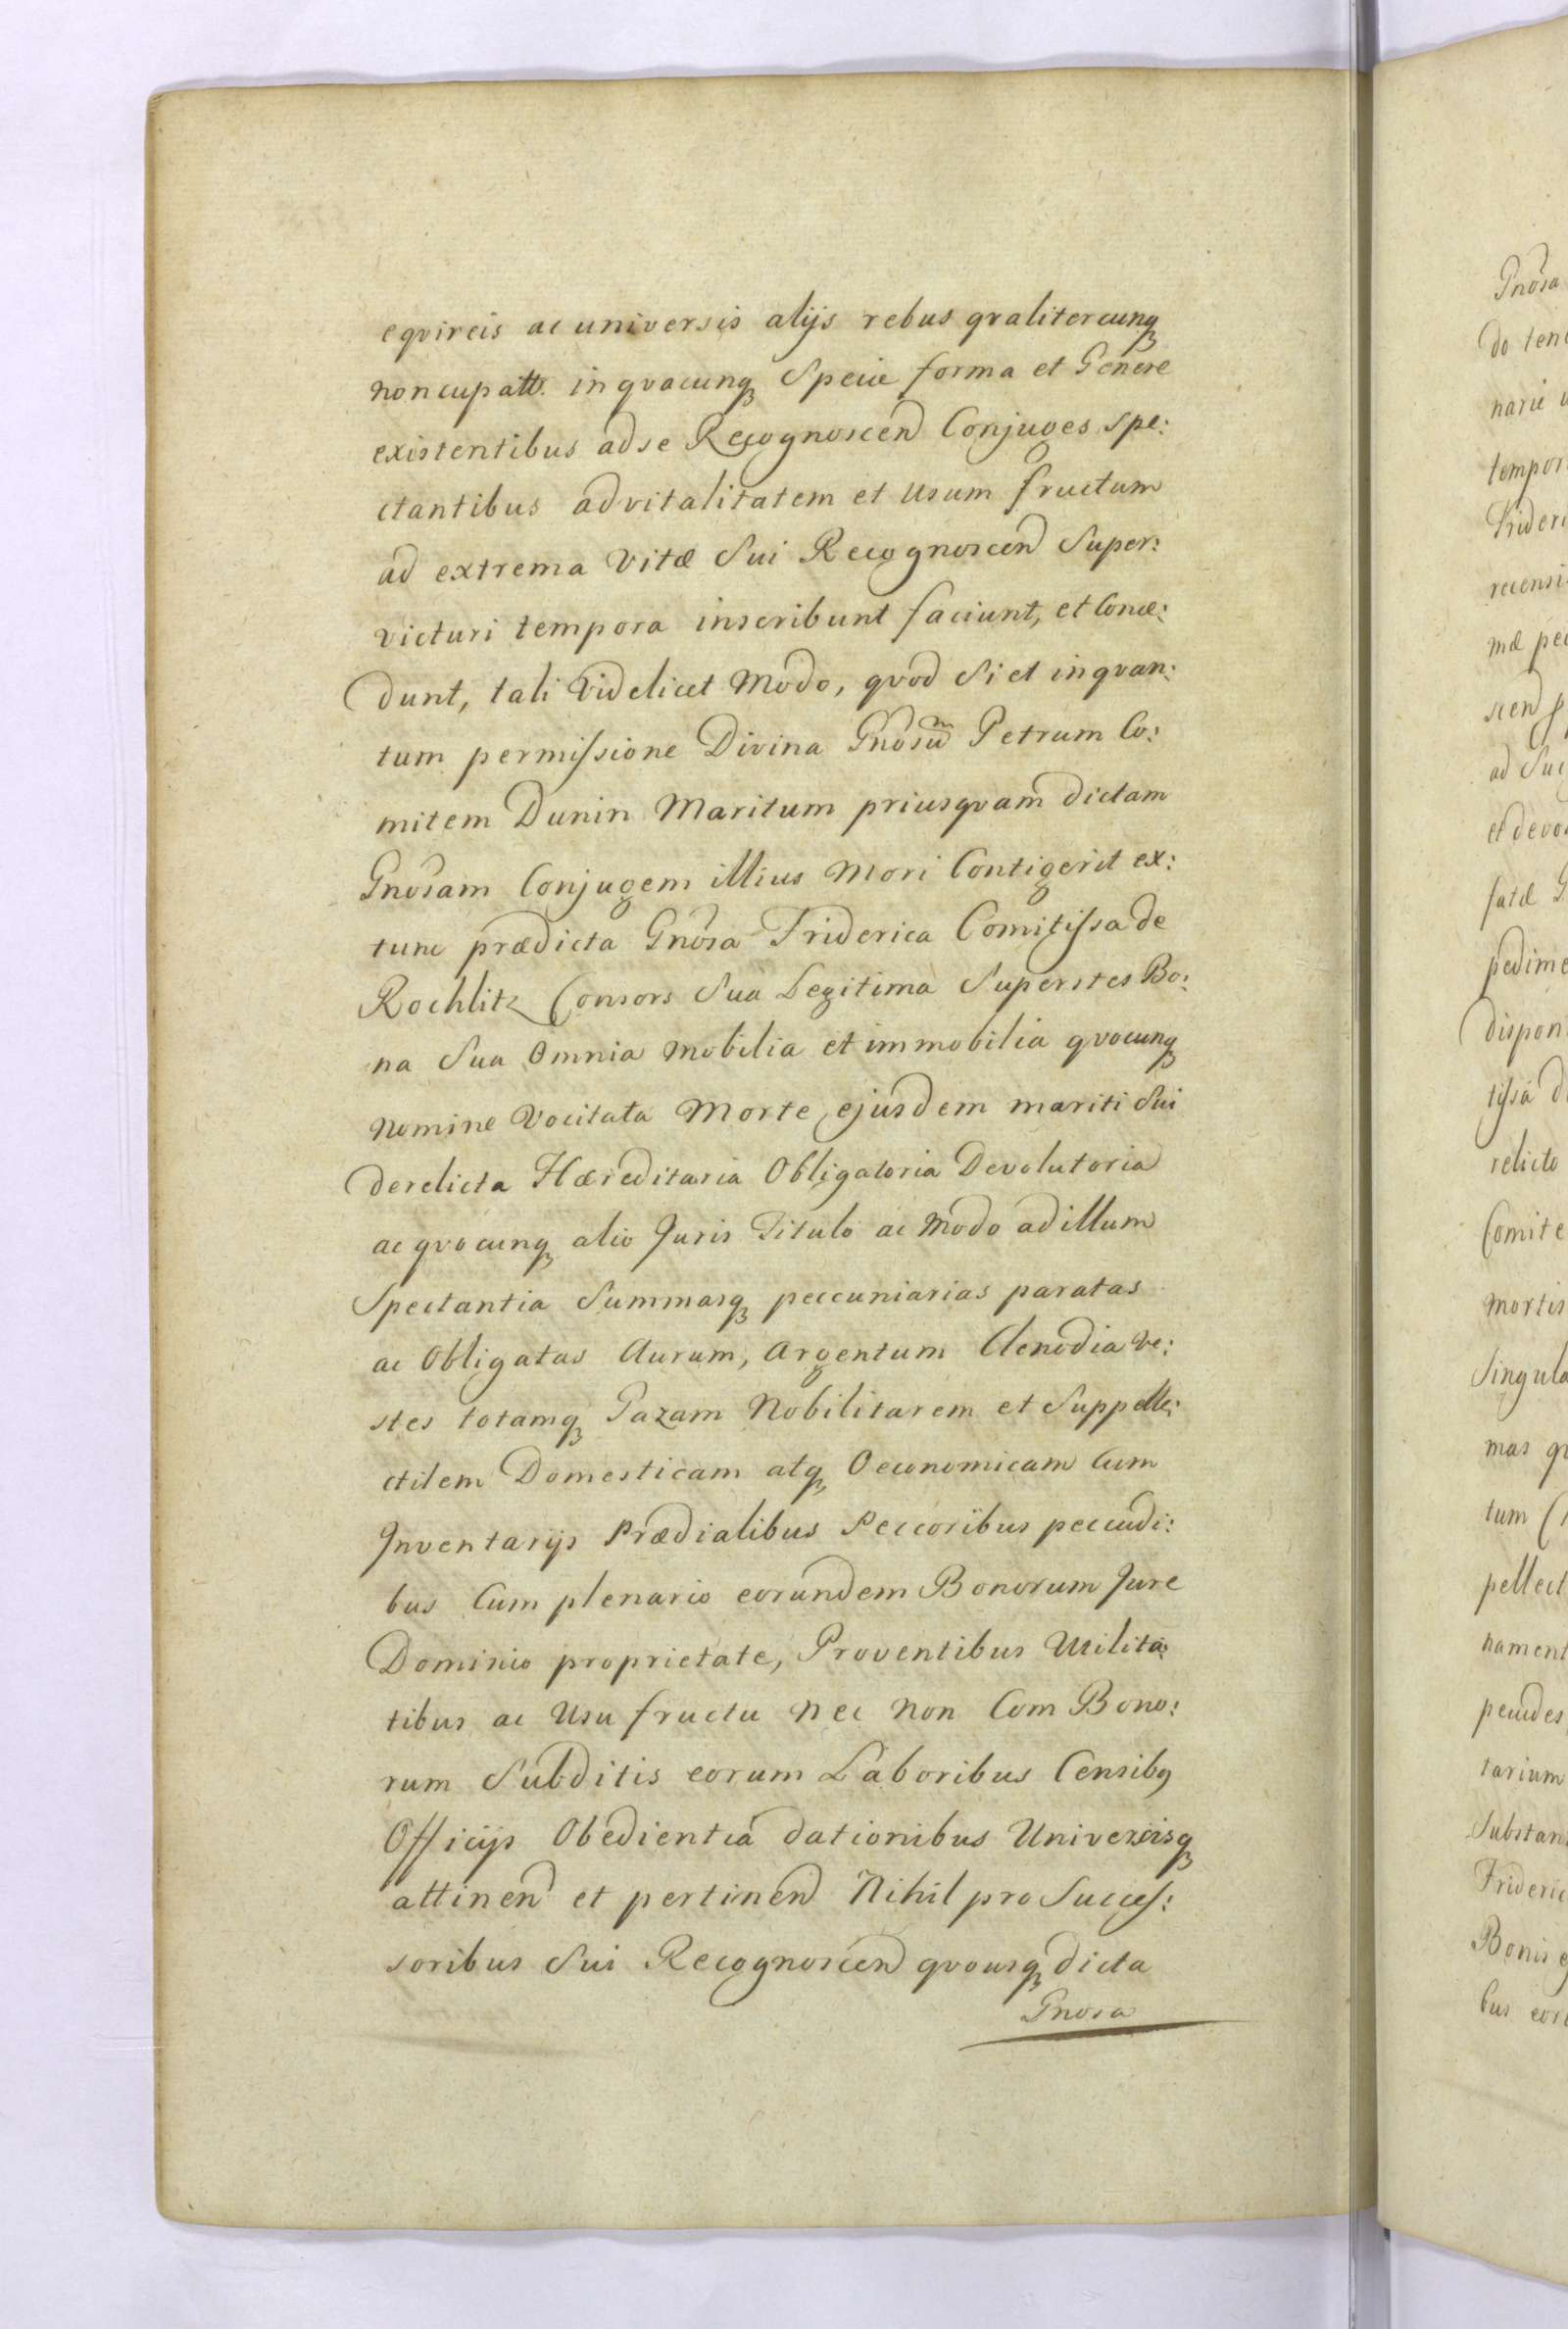 eqvireis ac universis alijs rebus qvalitercunq
noncupatt. in qvacunq Specie forma et Genere
existentibus ad se Recognoscen Conjuges spe:
ctantibus ad vitalitatem et Usum fructum
ad extrema Vitæ Sui Recognoscen Super:
victuri tempora inscribunt faciunt, et Conce:
dunt, tali Videlicet Modo, qvod Si et in qvan:
tum permissione Divina Gnosum Petrum Co:
mitem Dunin Maritum priusqvam dictam
Gnosam Conjugem illius Mori Contigerit ex:
tunc prædicta Gnosa Friderica Comitissa de
Rochlitz Consors Sua Legitima Superstes Bo:
na Sua Omnia mobilia et immobilia qvocunq
nomine Vocitata Morte ejusdem mariti Sui
derelicta Hæreditaria Obligatoria Devolutoria
ac qvocunq alio Juris Titulo ac Modo ad illum
Spectantia Summasq peccuniarias paratas
ac Obligatas Aurum, Argentum Clenodia ve:
stes totamq Gazam Nobilitarem et Suppelle:
ctilem Domesticam atq Oeconomicam Cum
Inventarijs Prædialibus Peccoribus peccudi:
bus Cum plenario eorundem Bonorum Jure
Dominio proprietate, Proventibus Utilita:
tibus ac Usu fructu nec non Com Bono:
rum Subditis eorum Laboribus Censibq
Officijs Obedientia dationibus Universisq
attinen et pertinen Nihil pro Succes:
soribus Sui Recognoscen qvousq dicta
Gnosa
Gnosa
do ten
narie
tempor
Frideri
recensi
mæ pec
scen
ad Suc
et devo
fatæ G
pedime
dispon
tissa d
relicto
Comite
mortis
Singula
mas q
tum
pellect
nament
pecudes
tarium
Substan
Frideric
Bonis e
bus eor